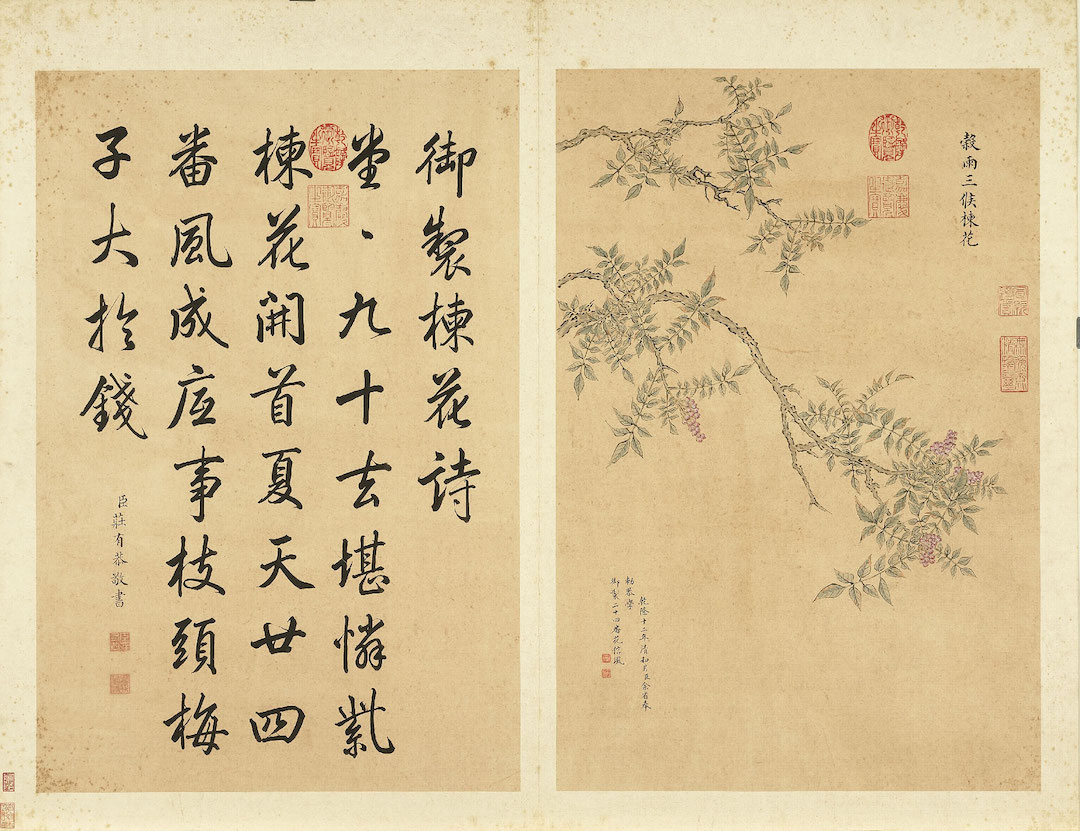 穀雨三候楝花
乾隆十二年清和月臣余省奉
勅恭摹
御製二十四番花信風
御製楝花詩
堂〻九十去堪憐紫
楝花開首夏天廿四
番風成底事枝頭梅
子大扵錢
臣莊有恭敬書